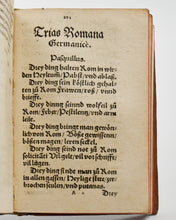 Trias Romana
Germanicè.
Pasquillus.
Drey ding halten Rom in wir-
den Heyltum / Pabst / vnd ablaß.
Drey ding sein köstlich gehal-
ten zu Rom Frawen / roß / vnnd
brieff.
Drey dinng seinnd wolfeil zu
Rom / Feber / Pestilentz / vnd ar-
mut.
Drey ding bringt man gewön-
lich von Rom / Böse gewissenn /
bösen magen / leeren seckel.
Drey ding sind nit zu Rom
solicitir Vil gelt / vil vor
vil lügen.
Drey ding finde man zu Rom
in allen gassen / Heylige stet / zer-
brochen seulen / vnd putanas.
A
Drey